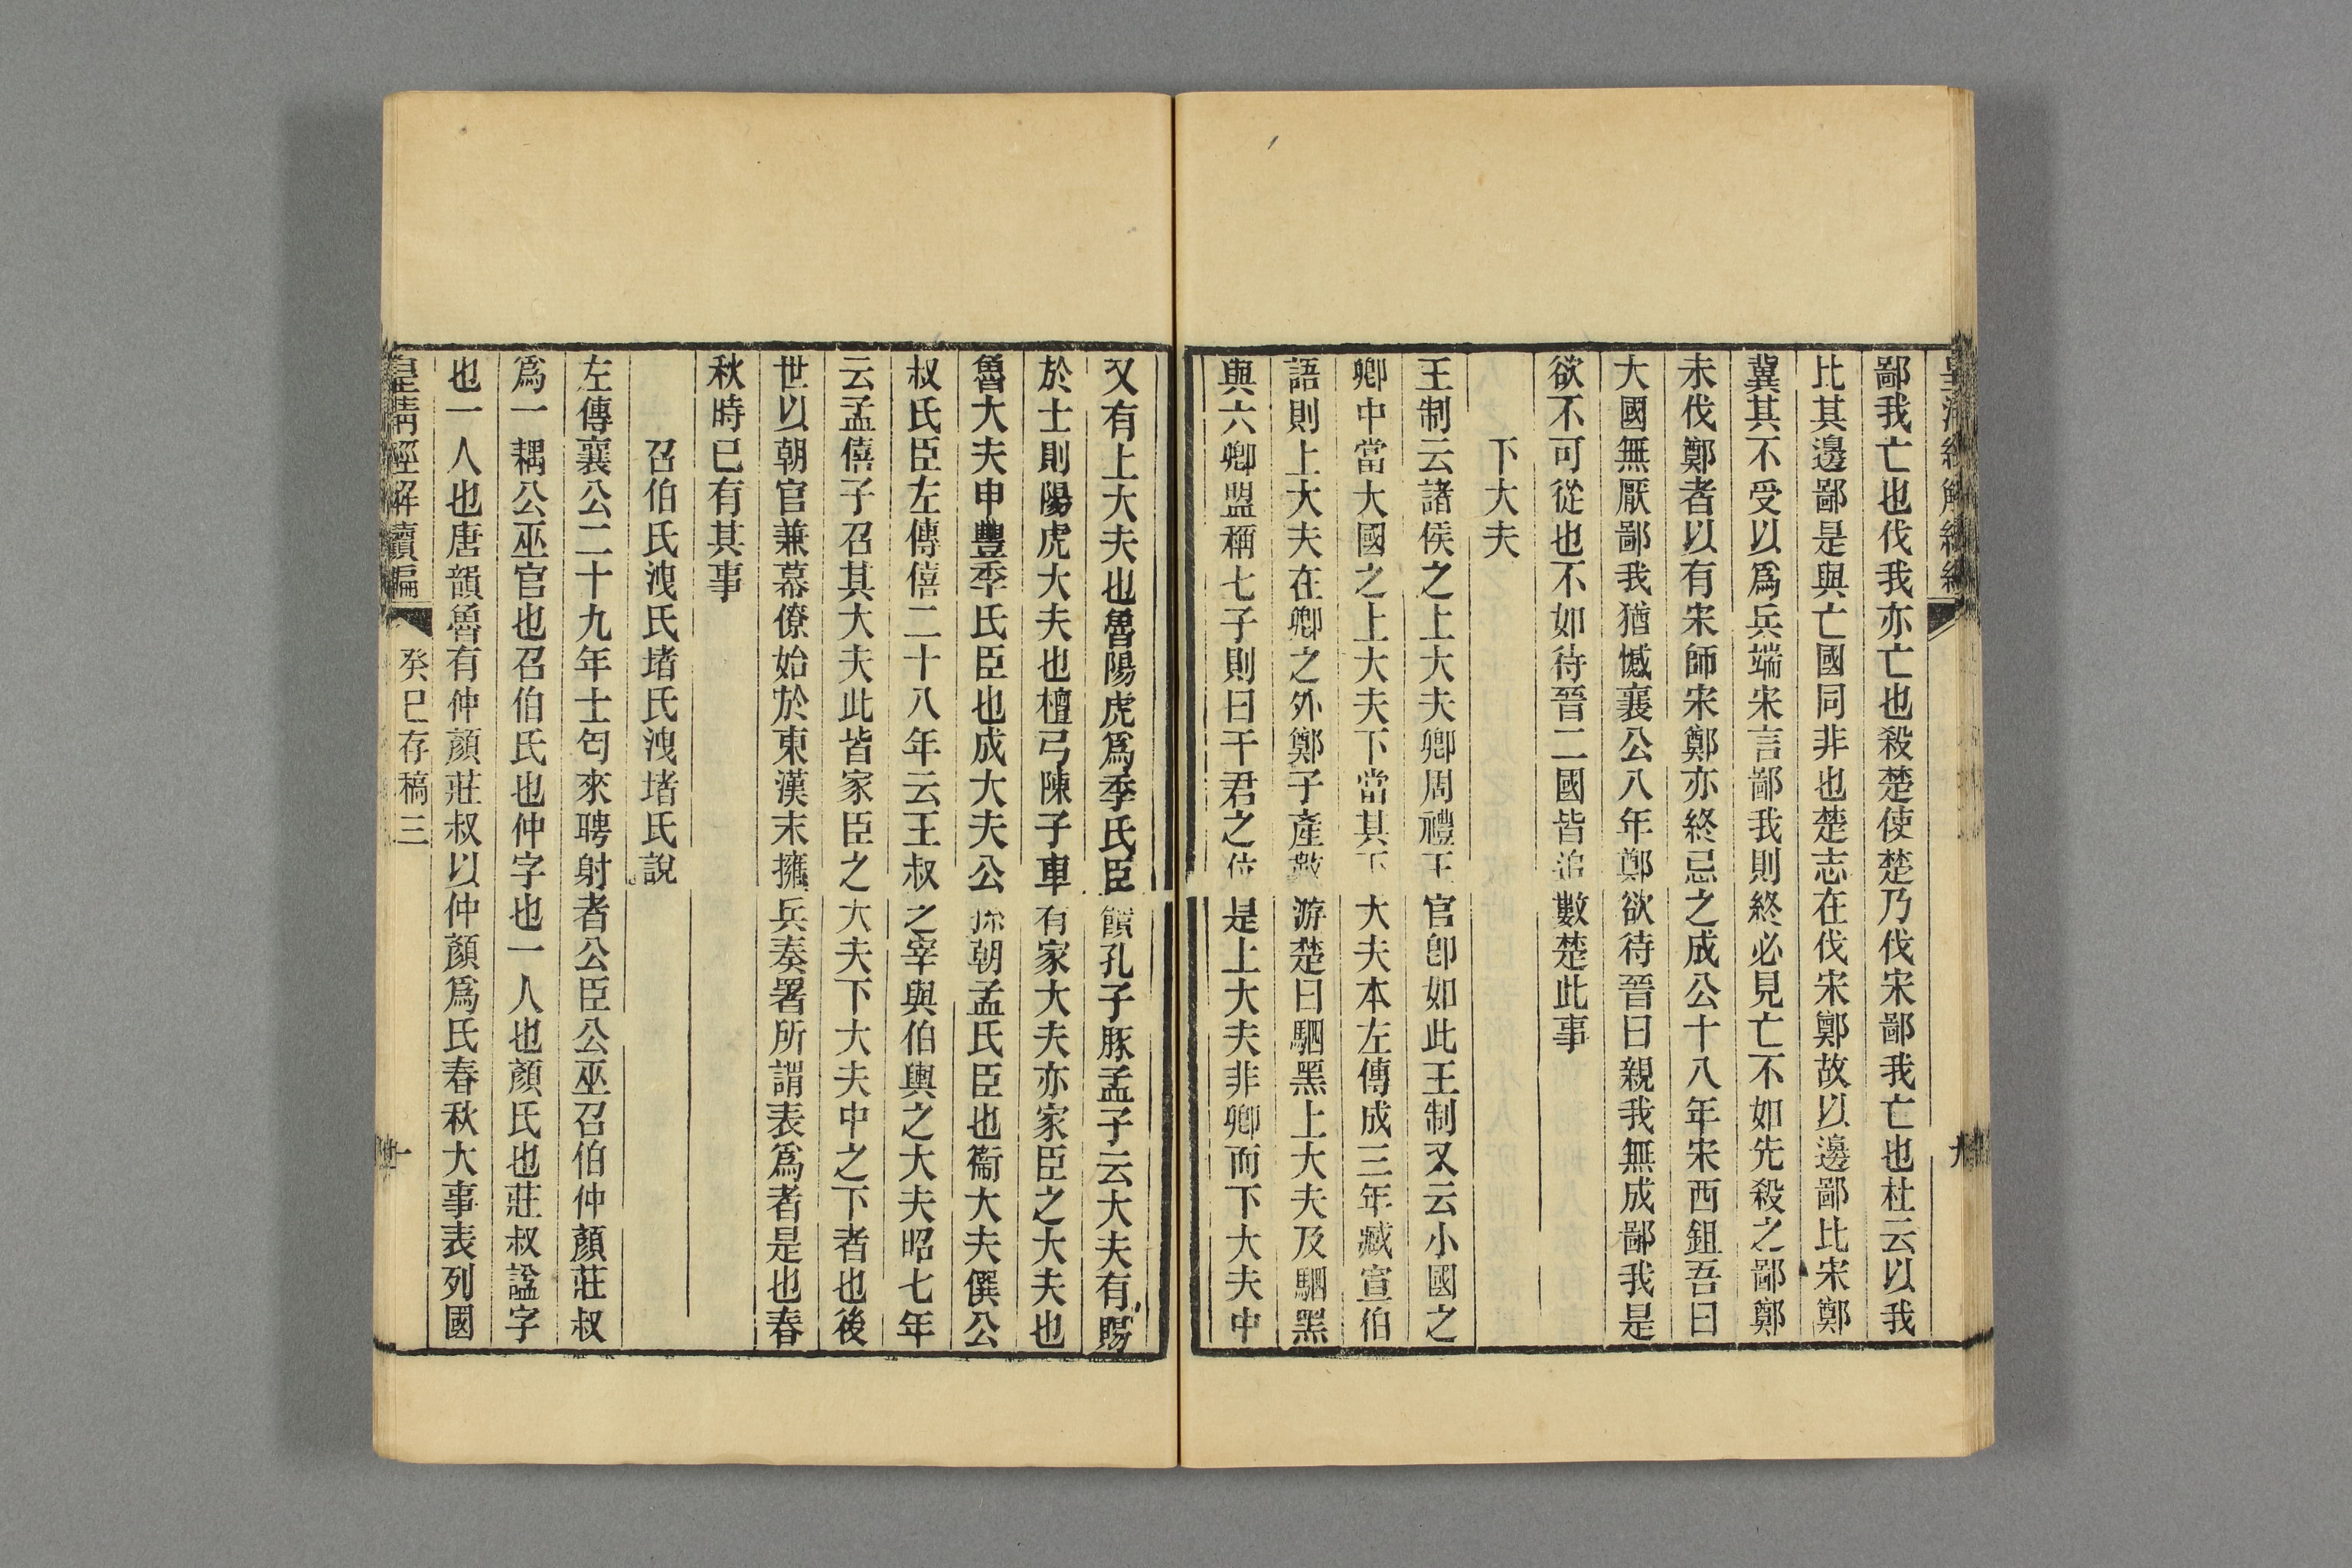 鄙我亡也伐我亦亡也殺楚使楚乃伐宋鄙我亡也杜云以我
比其邊鄙是與亡國同非也楚志在伐宋鄭故以邊鄙比宋鄭
冀其不受以爲兵端宋言鄙我則終必見亡不如先殺之鄙鄭
未伐鄭者以有宋師宋鄭亦終忌之成公十八年宋西鉏吾曰
大國無厭鄙我猶憾襄公八年鄭欲待晉曰親我無成鄙我是
欲不可從也不如待晉二國皆追數楚此事
下大夫
王制云諸侯之上大夫卿周禮王官卽如此王制又云小國之
卿中當大國之上大夫下當其下大夫本左傳成三年臧宣伯
語則上大夫在卿之外鄭子產數游楚曰駟黑上大夫及駟黑
與六卿盟稱七子則曰干君之位是上大夫非卿而下大夫中
又有上大夫也魯陽虎爲季氏臣饋孔子豚孟子云大夫有賜
於士則陽虎大夫也檀弓陳子車有家大夫亦家臣之大夫也
魯大夫申豐季氏臣也成大夫公孫朝孟氏臣也衞大夫僎公
叔氏臣左傳僖二十八年云王叔之宰與伯輿之大夫昭七年
云孟僖子召其大夫此皆家臣之大夫下大夫中之下者也後
世以朝官兼幕僚始於東漢末擁兵奏署所謂表爲者是也春
秋時已有其事
召伯氏洩氏堵氏洩堵氏說
左傳襄公二十九年士匄來聘射者公臣公巫召伯仲顏莊叔
爲一耦公巫官也召伯氏也仲字也一人也顏氏也莊叔謚字
也一人也唐韻魯有仲顏莊叔以仲顏爲氏春秋大事表列國
皇淸經解續編
癸巳存稿三